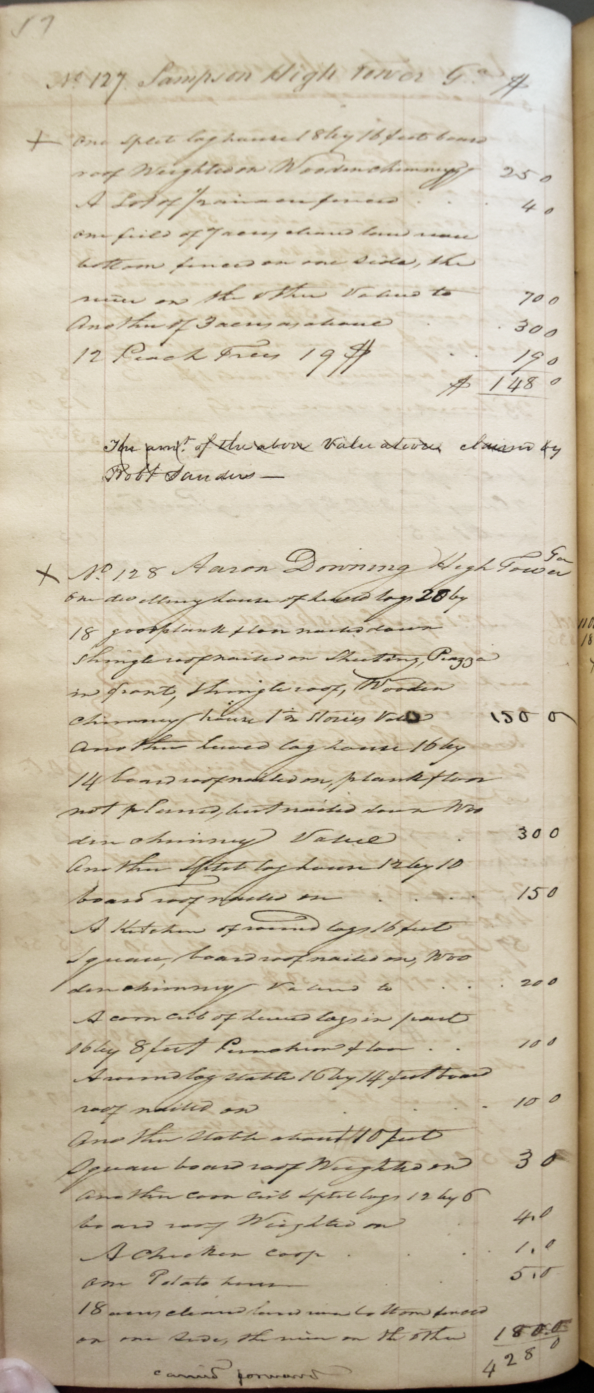 57
No 127 Sampson High Tower Ga $
+ One Split log house 18 by 16 feet board
roof Weighted on Wooden chimney 25 0
A Lot of fenced . . 4 0
one field of 7 acres cleared land
bottom fenced on one side, the
river on the other Valued to 70 0
Another of 3 acres as above . . 30 0
12 Peach Trees 19 $ . . 19 0
$ 148 0
The amt. of the above Valuation claimed by
Robt Sanders —
+ No 128 Aaron Downing High Tower Ga
One dwelling house of hewed logs 20 by
18 good plank floor nailed down
Shingle roof nailed on Sheeting, Piazza
in front, Shingle roof, Wooden
chimney house 1½ Stories Value 150 0
Another hewed log house 16 by
14 board roof nailed on, plank floor
not planed, but nailed down Woo
den chimney Value . 30 0
Another Split log house 12 by 10
board roof nailed on . . . . 15 0
A Kitchen of round logs 16 feet
Square, board roof nailed on, Woo
den chimney Valued to . . . 20 0
A corn crib of hewed logs in part
16 by 8 feet Puncheon floor . . 10 0
A round log stable 16 by 14 feet board
roof nailed on . . . . 10 0
Another Stable about 10 feet
Square board roof Weighted on 3 0
Another corn crib Split logs 12 by 6
board roof Weighted on 4.0
A Chicken coop . . . 1.0
one Potato house 5.0
18 acres cleared land bottom fenced
on one Side, the river on the other 180.0
428 0